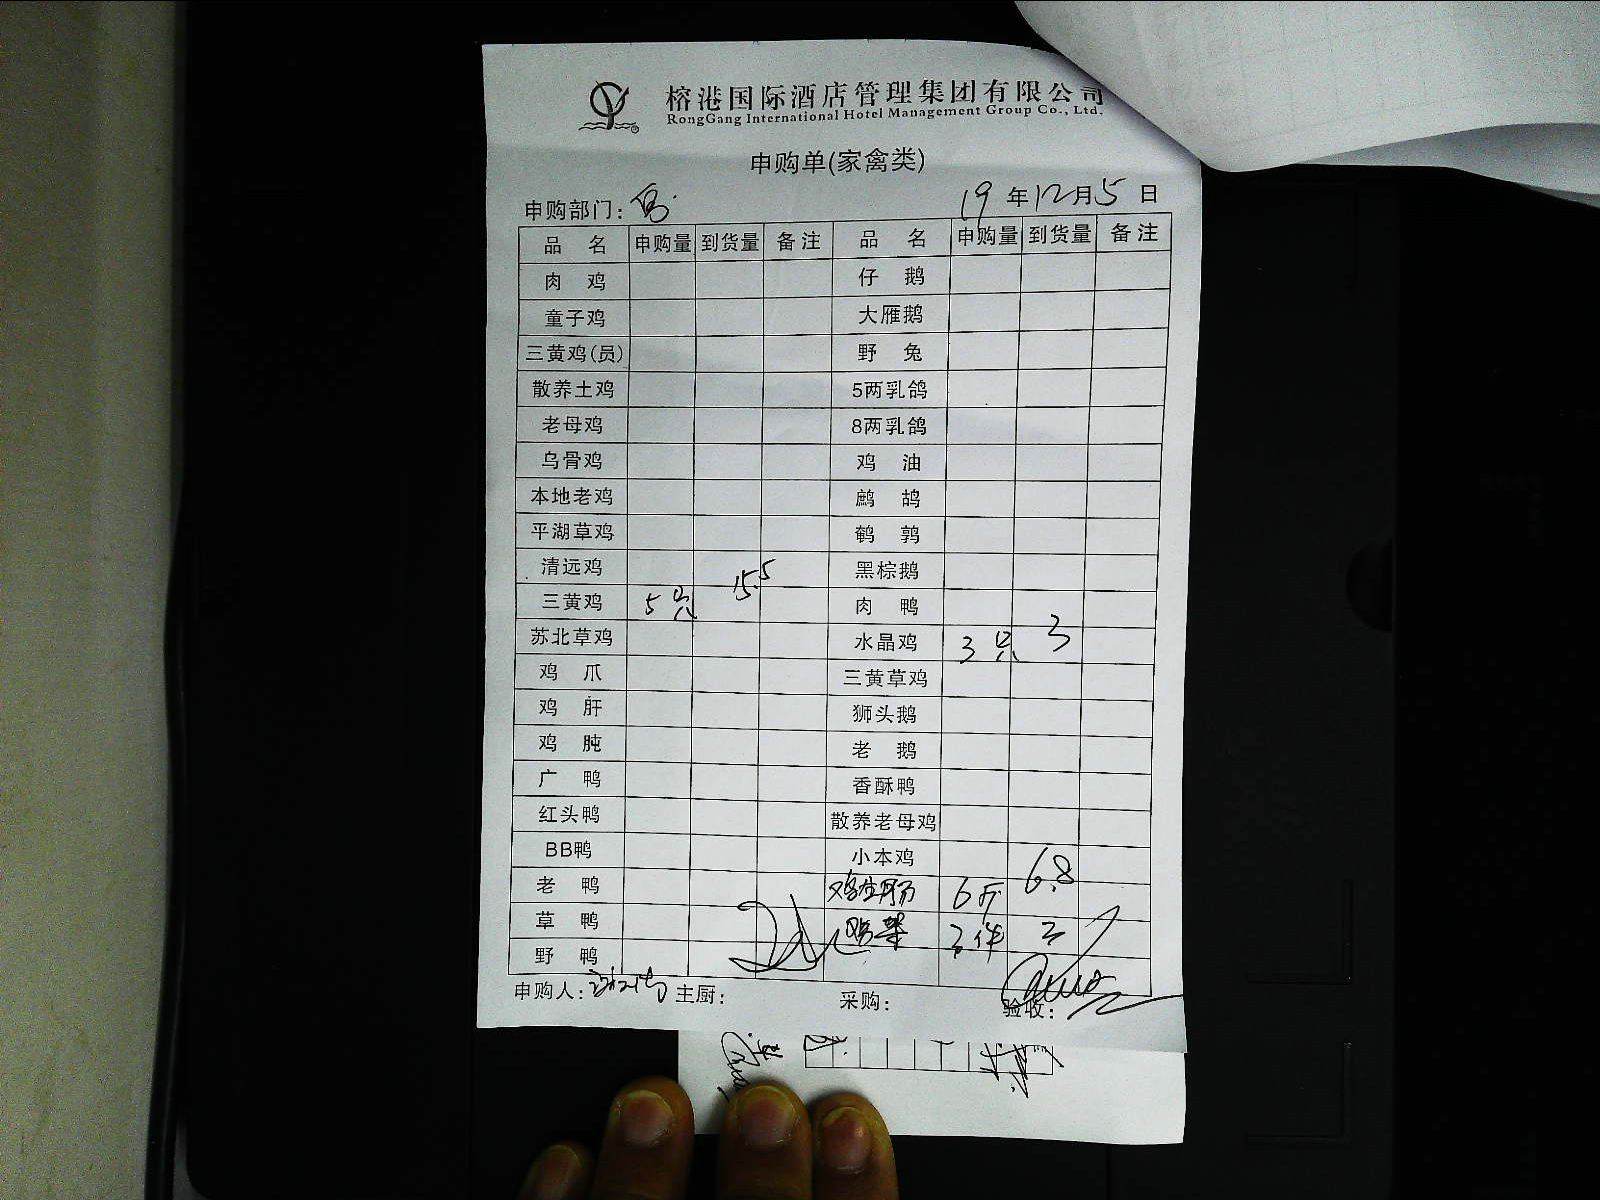 榕港国际酒店管理集团有限公司
RongGang International Hotel Management Group Co., Ltd.
申购单(家禽类)
申购部门: 19 年 12 月 5 日
品 名 申购量 到货量 备注 品 名 申购量 到货量 备注
肉 鸡 仔 鹅
童子鸡 大雁鹅
三黄鸡(员) 野 兔
散养土鸡 5两乳鸽
老母鸡 8两乳鸽
乌骨鸡 鸡 油
本地老鸡 鹧 鸪
平湖草鸡 鹌 鹑
清远鸡 黑棕鹅
三黄鸡 5只 15.5 肉 鸭
苏北草鸡 水晶鸡 3只 3
鸡 爪 三黄草鸡
鸡 肝 狮头鹅
鸡 肫 老 鹅
广 鸭 香酥鸭
红头鸭 散养老母鸡
BB鸭 小本鸡
老 鸭 鸡生肠 6斤 6.8
草 鸭 鸡架 3件 3
野 鸭
申购人: 主厨: 采购: 验收: